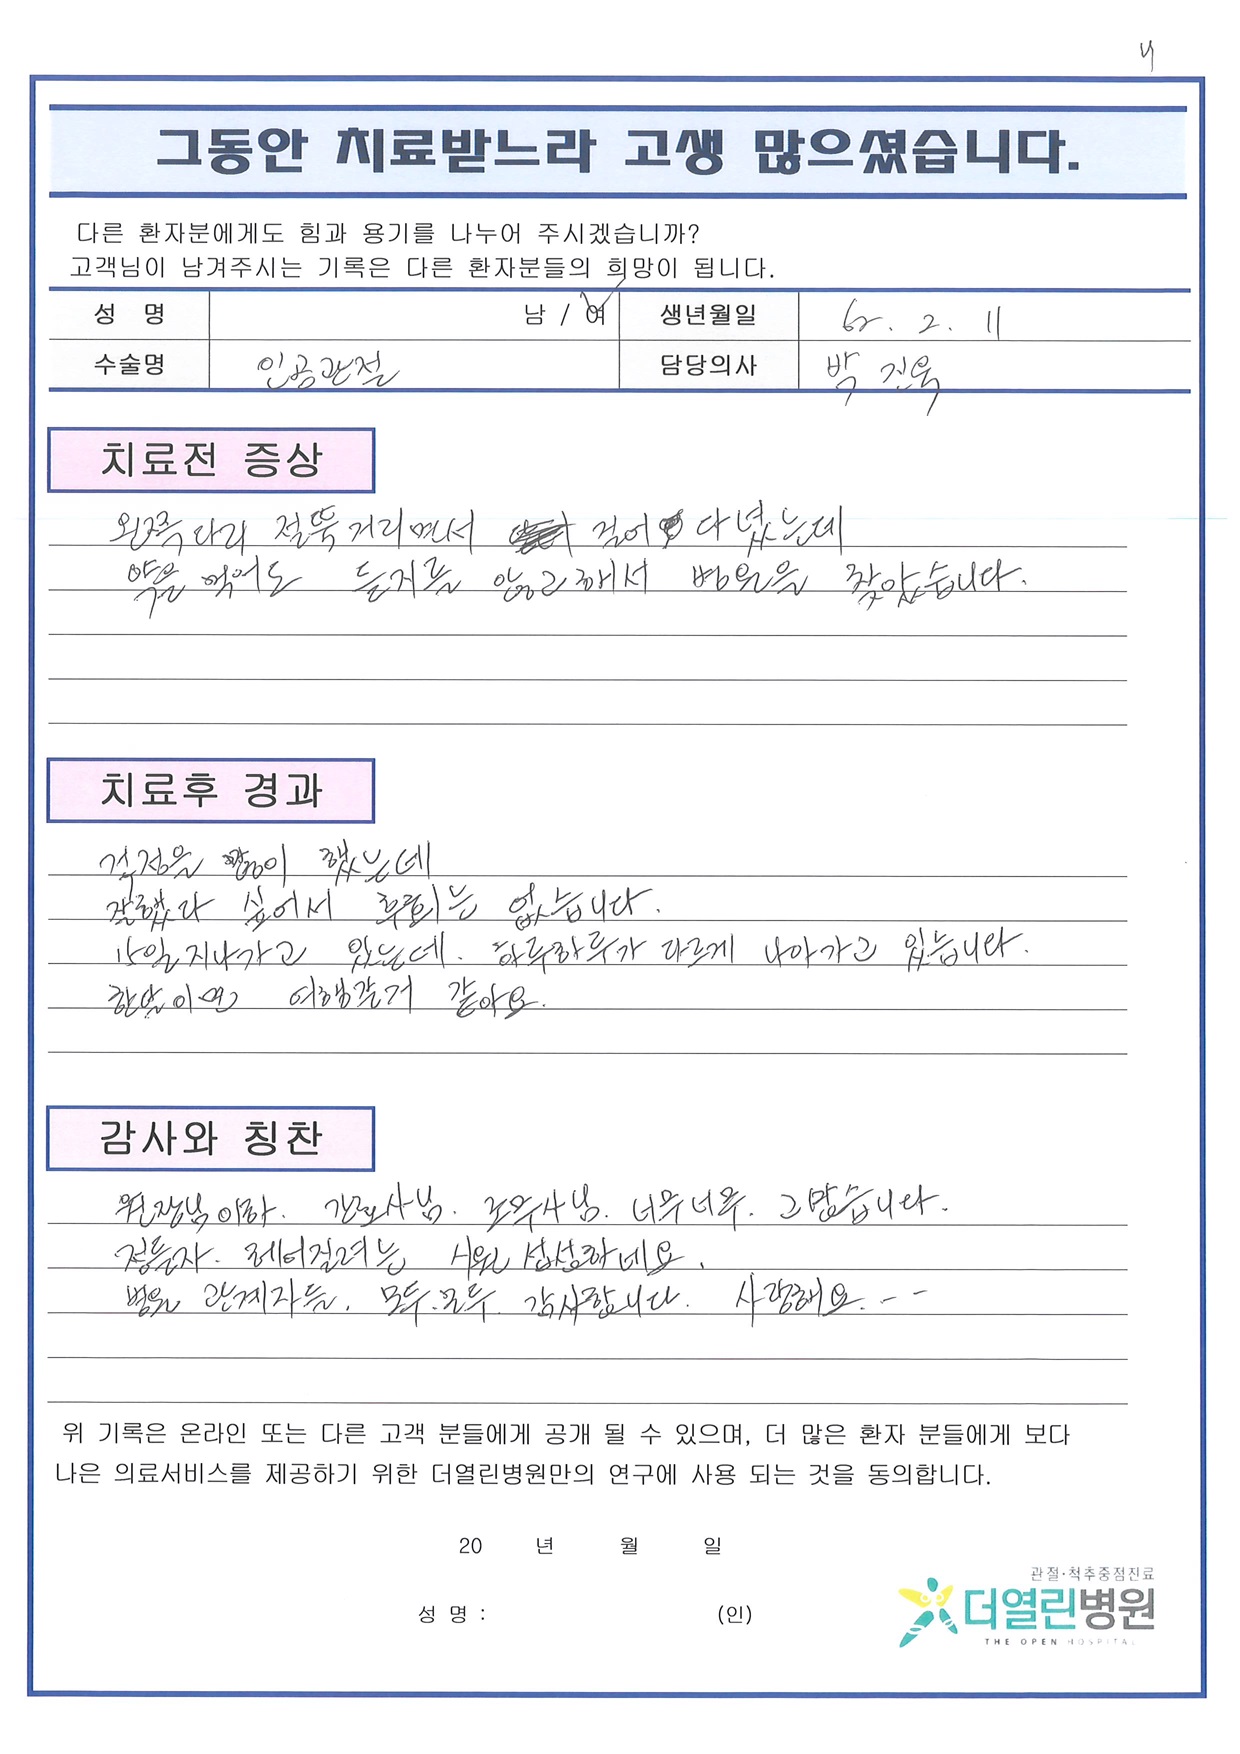 그동안 치료받느라 고생 많으셨습니다.
다른 환자분에게도 힘과 용기를 나누어 주시겠습니까?
고객님이 남겨주시는 기록은 다른 환자분들의 희망이 됩니다.
성 명 남 / 여 생년월일 62. 2. 11
수술명 인공관절 담당의사 박 진욱
치료전 증상
왼쪽다리 절뚝거리면서 걸어 다녔는데
약을 먹어도 듣지를 않고해서 병원을 찾았습니다.
치료후 경과
걱정을 많이 했는데
잘했다 싶어서 후회는 없습니다.
15일지나가고 있는데. 하루하루가 다르게 나아가고 있습니다.
한달이면 여행갈거 같아요.
감사와 칭찬
원장님이하. 간호사님. 조무사님. 너무너무. 고맙습니다.
정들자. 헤어질려는 시원섭섭하네요.
병원 관계자들. 모두.모두. 감사합니다. 사랑해요. - -
위 기록은 온라인 또는 다른 고객 분들에게 공개 될 수 있으며, 더 많은 환자 분들에게 보다
나은 의료서비스를 제공하기 위한 더열린병원만의 연구에 사용 되는 것을 동의합니다.
20 년 월 일
성 명 : (인)
관절·척추중점진료
더열린병원
THE OPEN HOSPITAL